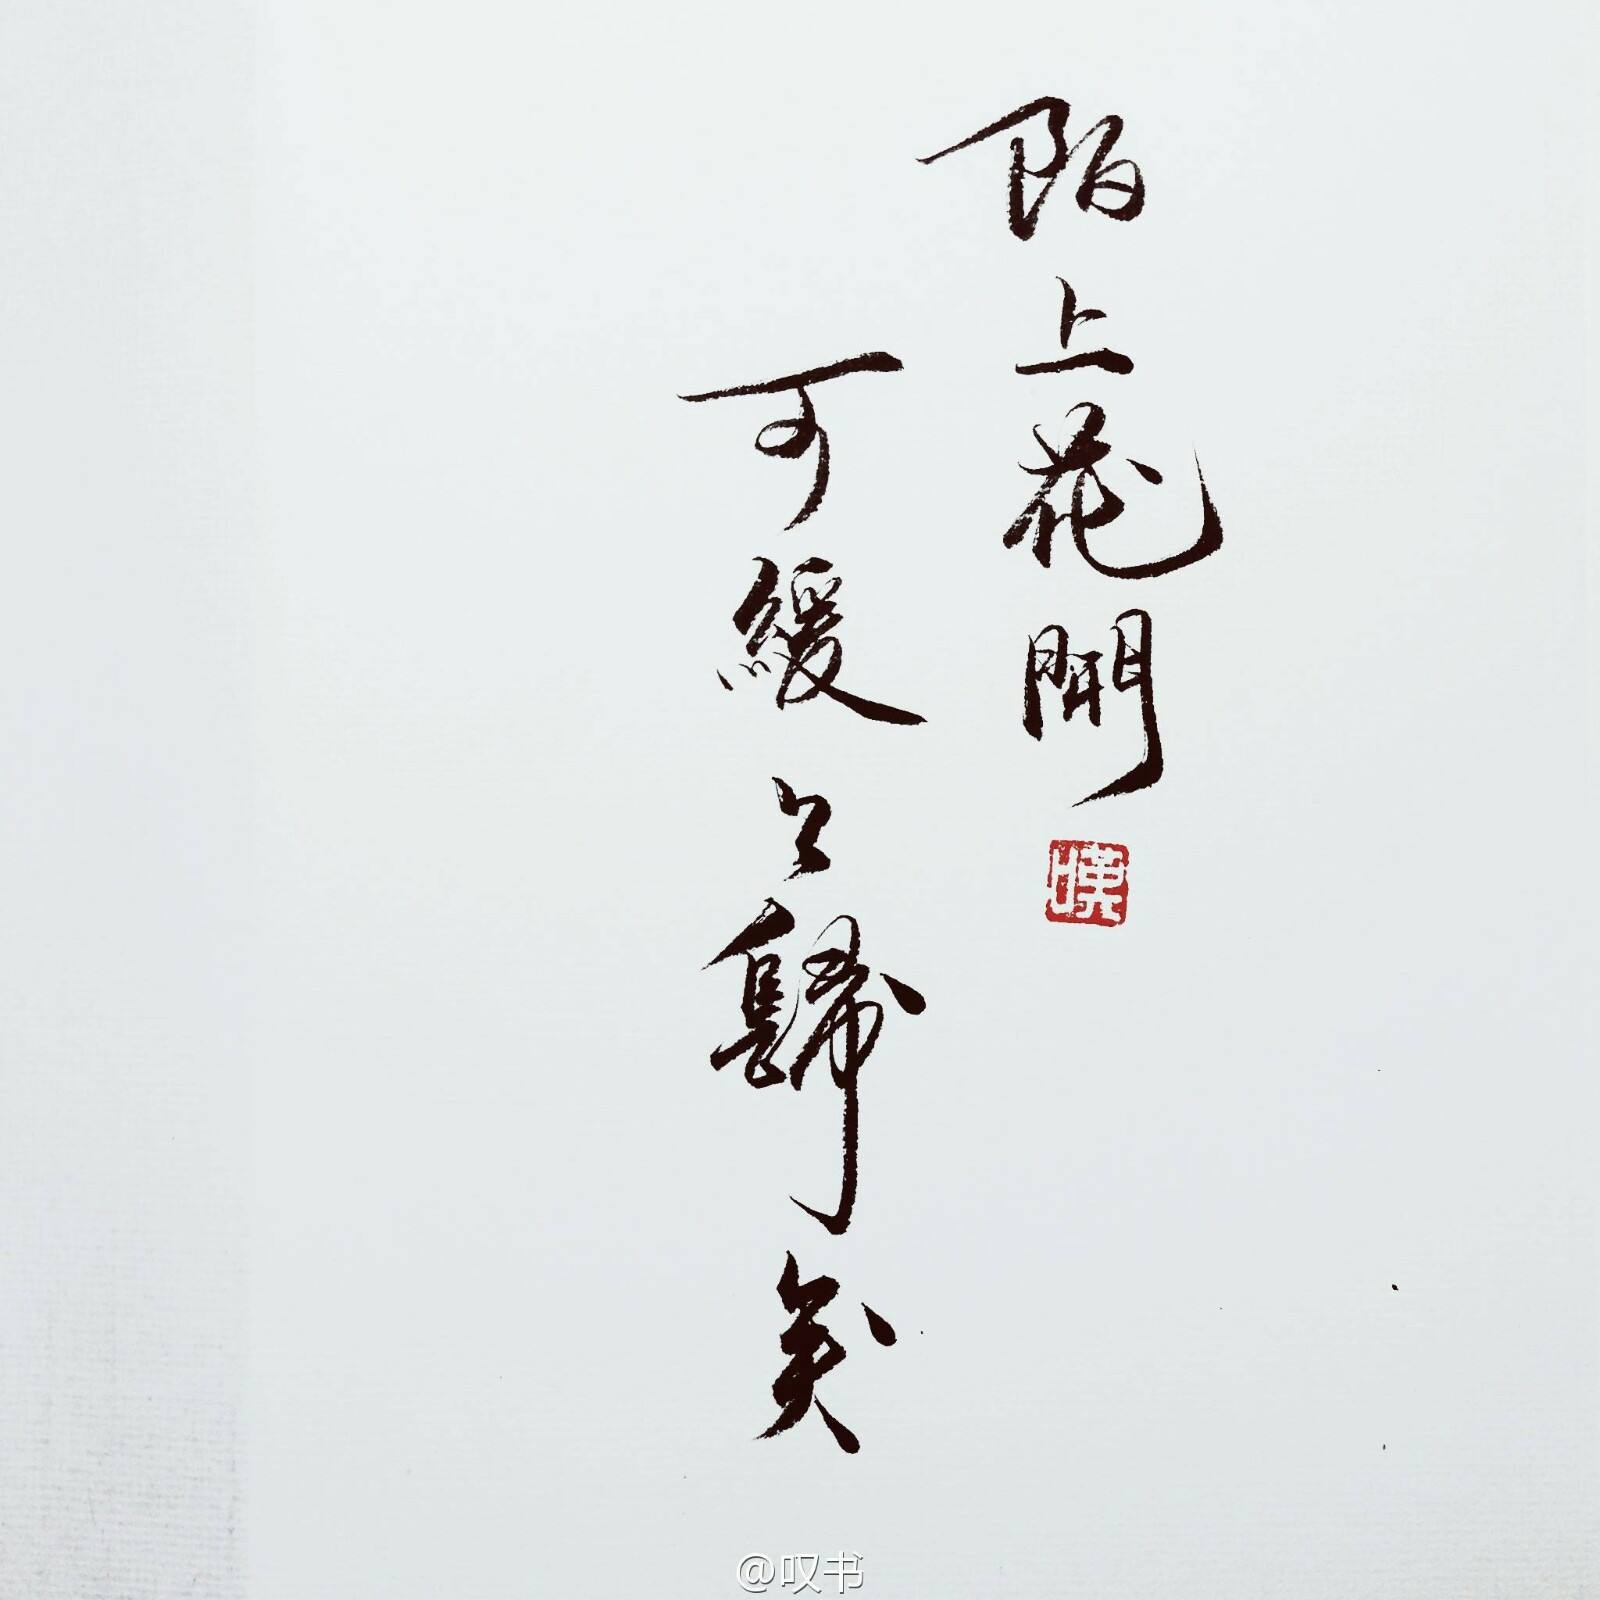 陌上花開
可緩々歸矣
嘆
@叹书